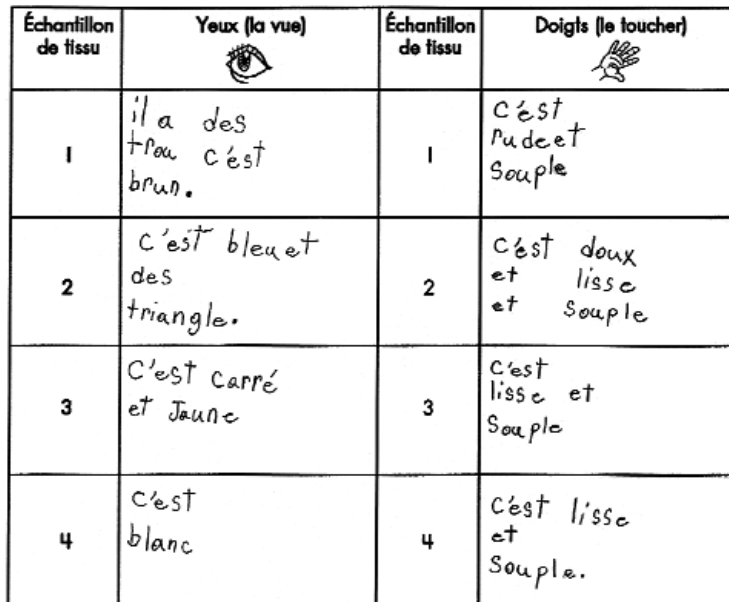 Échantillon
de tissu
Yeux (la vue)
Échantillon
de tissu
Doigts (le toucher)
1
il a des
trou c'est
brun.
1
c'est
rude et
souple
2
c'est bleu et
des
triangle.
2
c'est doux
et lisse
et souple
3
C'est carré
et Jaune
3
c'est
lisse et
souple
4
c'est
blanc
4
c'est lisse
et
souple.